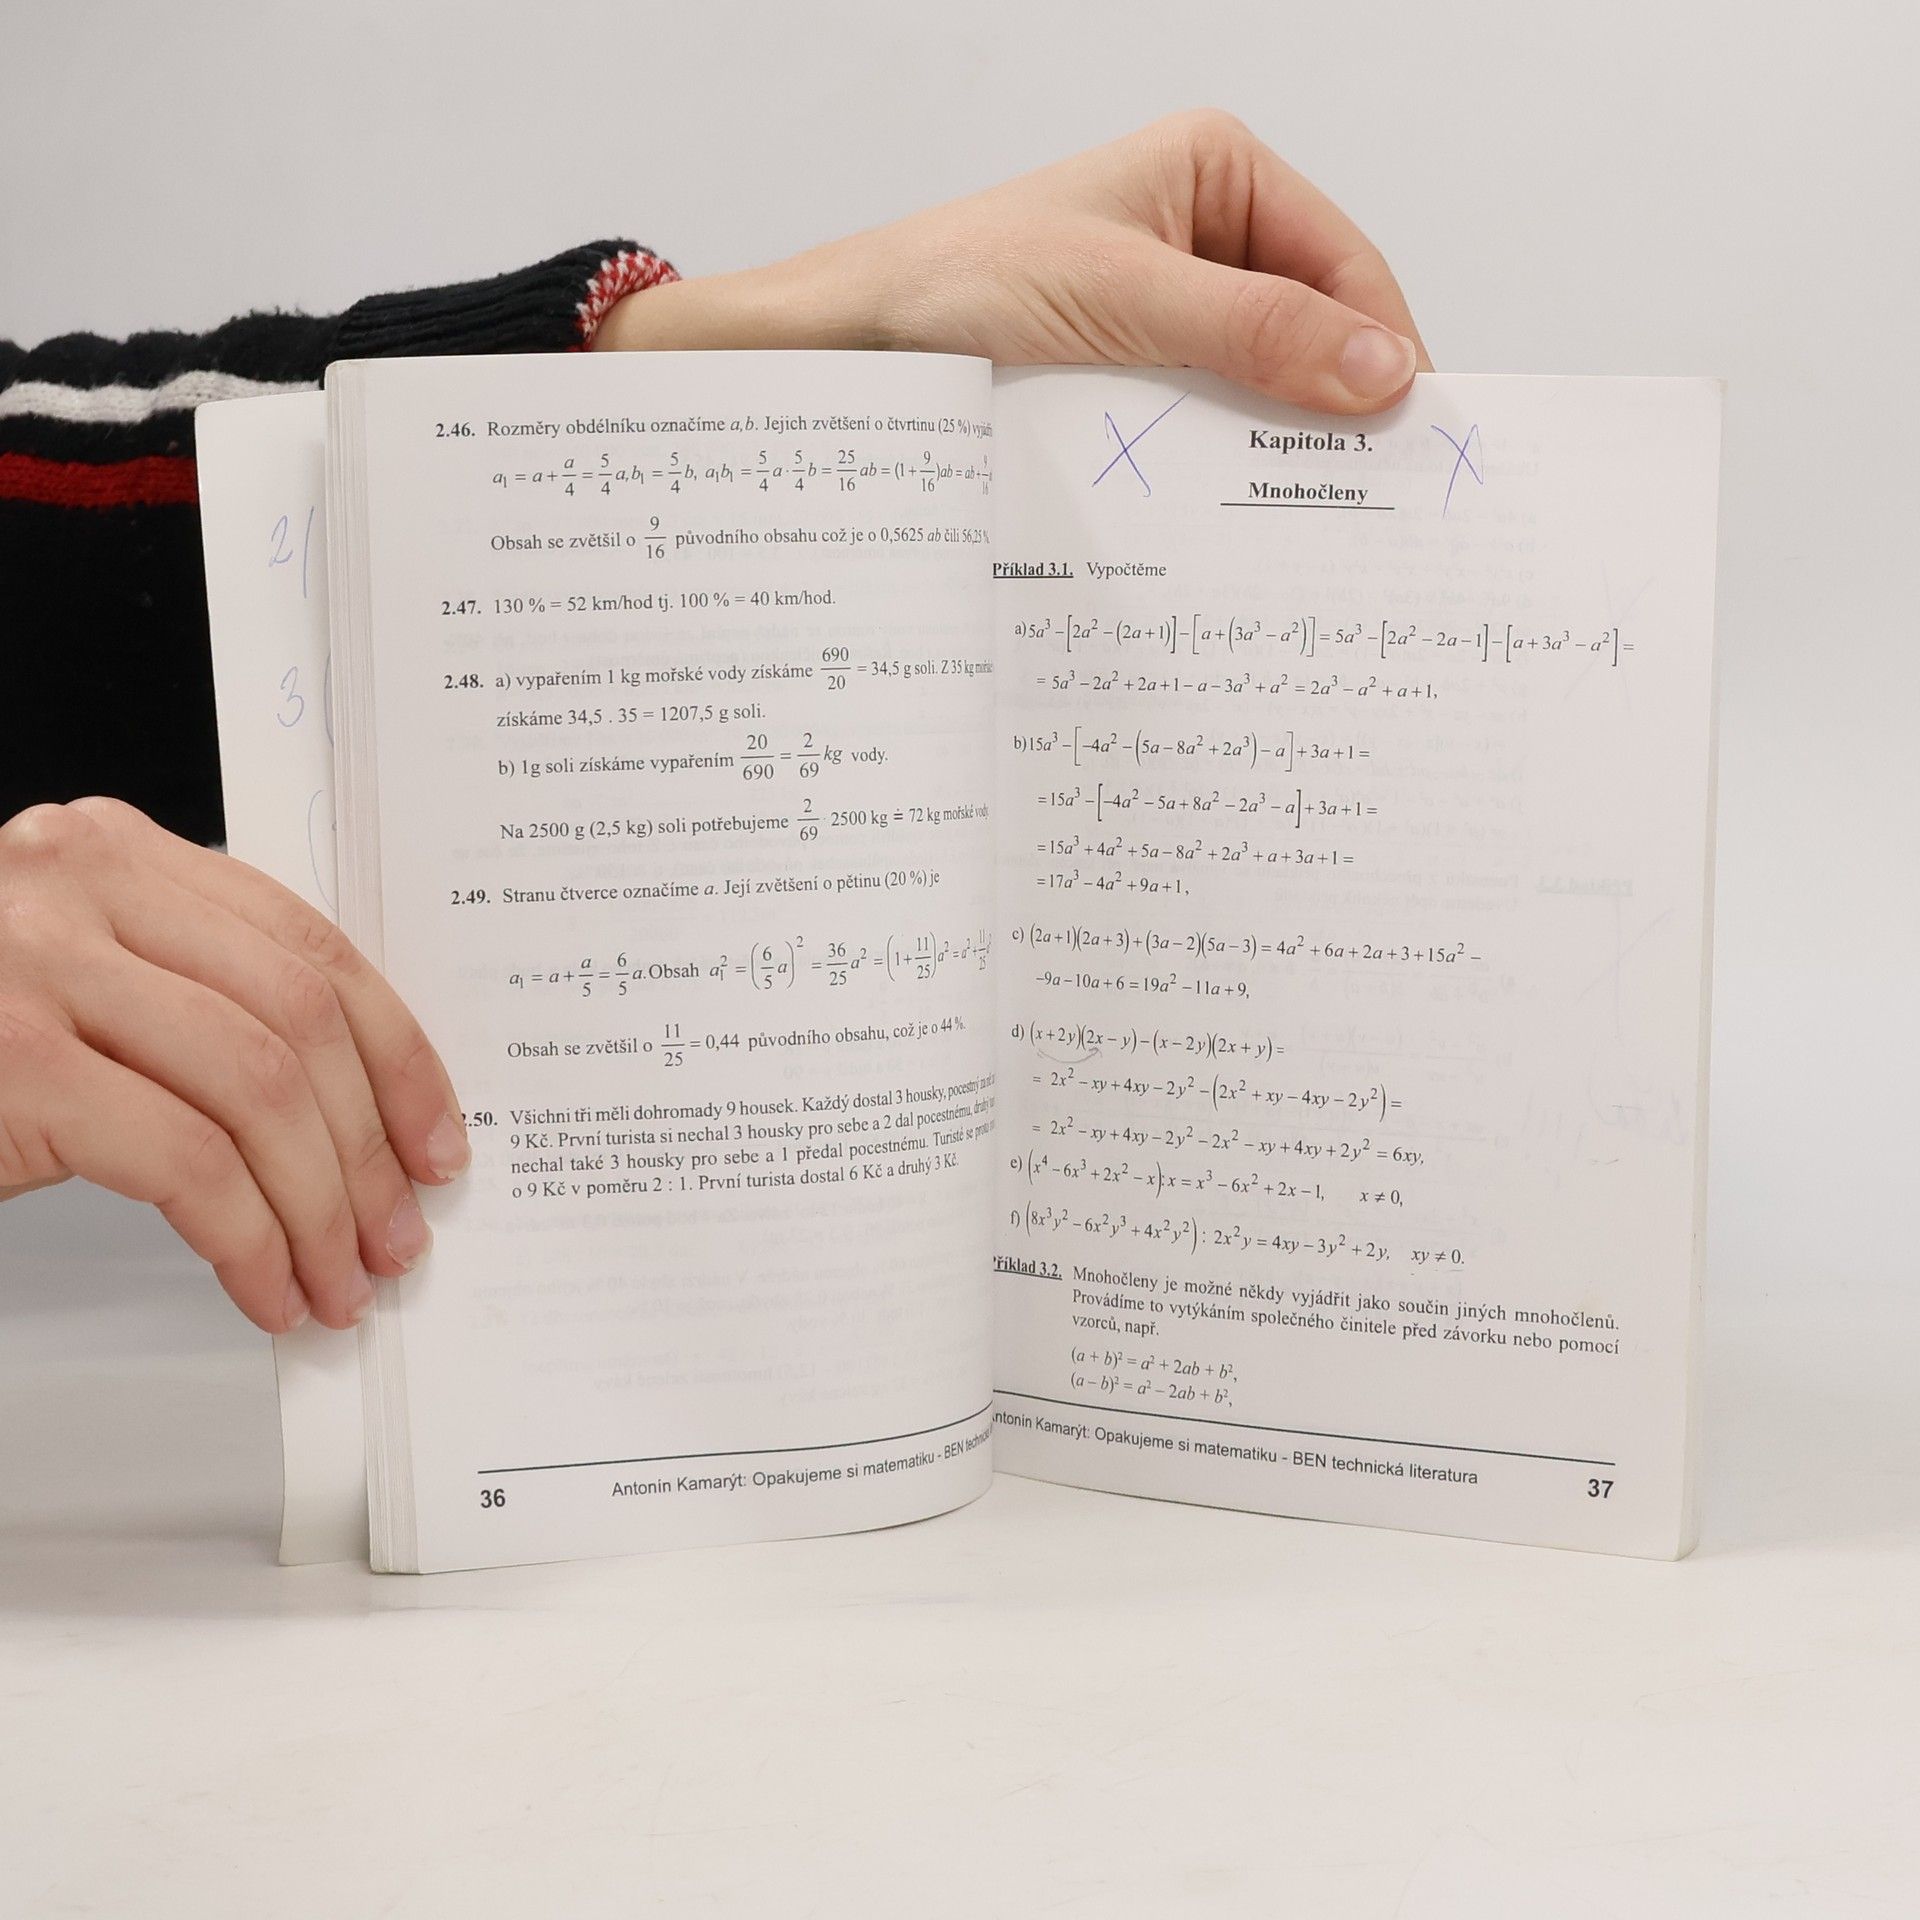 2.46. Rozměry obdélníku označíme a,b. Jejich zvětšení o čtvrtinu (25 %)
a₁ = a + a/4 = 5/4 a, b₁ = 5/4 b, a₁b₁ = 5/4 a · 5/4 b = 25/16 ab = (1 + 9/16)ab = ab + 9/16
Obsah se zvětšil o 9/16 původního obsahu což je o 0,5625 ab čili 56,25 %
2.47. 130 % = 52 km/hod tj. 100 % = 40 km/hod.
2.48. a) vypařením 1 kg mořské vody získáme 690/20 = 34,5 g soli. Z 35 kg
získáme 34,5 . 35 = 1207,5 g soli.
b) 1g soli získáme vypařením 20/690 = 2/69 kg vody.
Na 2500 g (2,5 kg) soli potřebujeme 2/69 · 2500 kg ≐ 72 kg mořské vody
2.49. Stranu čtverce označíme a. Její zvětšení o pětinu (20 %) je
a₁ = a + a/5 = 6/5 a. Obsah a₁² = (6/5 a)² = 36/25 a² = (1 + 11/25)a² = a² + 11/25
Obsah se zvětšil o 11/25 = 0,44 původního obsahu, což je o 44 %.
2.50. Všichni tři měli dohromady 9 housek. Každý dostal 3 housky, pocestný
9 Kč. První turista si nechal 3 housky pro sebe a 2 dal pocestnému, druhý
nechal také 3 housky pro sebe a 1 předal pocestnému. Turisté se
o 9 Kč v poměru 2 : 1. První turista dostal 6 Kč a druhý 3 Kč.
Antonín Kamarýt: Opakujeme si matematiku - BEN
36
2/
3(
Kapitola 3.
Mnohočleny
Příklad 3.1. Vypočtěme
a) 5a³ − [2a² − (2a + 1)] − [a + (3a³ − a²)] = 5a³ − [2a² − 2a − 1] − [a + 3a³ − a²] =
= 5a³ − 2a² + 2a + 1 − a − 3a³ + a² = 2a³ − a² + a + 1,
b) 15a³ − [−4a² − (5a − 8a² + 2a³) − a] + 3a + 1 =
= 15a³ − [−4a² − 5a + 8a² − 2a³ − a] + 3a + 1 =
= 15a³ + 4a² + 5a − 8a² + 2a³ + a + 3a + 1 =
= 17a³ − 4a² + 9a + 1,
c) (2a + 1)(2a + 3) + (3a − 2)(5a − 3) = 4a² + 6a + 2a + 3 + 15a² −
−9a − 10a + 6 = 19a² − 11a + 9,
d) (x + 2y)(2x − y) − (x − 2y)(2x + y) =
= 2x² − xy + 4xy − 2y² − (2x² + xy − 4xy − 2y²) =
= 2x² − xy + 4xy − 2y² − 2x² − xy + 4xy + 2y² = 6xy,
e) (x⁴ − 6x³ + 2x² − x) : x = x³ − 6x² + 2x − 1, x ≠ 0,
f) (8x³y² − 6x²y³ + 4x²y²) : 2x²y = 4xy − 3y² + 2y, xy ≠ 0.
Příklad 3.2. Mnohočleny je možné někdy vyjádřit jako součin jiných mnohočlenů.
Provádíme to vytýkáním společného činitele před závorku nebo pomocí
vzorců, např.
(a + b)² = a² + 2ab + b²,
(a − b)² = a² − 2ab + b²,
Antonín Kamarýt: Opakujeme si matematiku - BEN technická literatura
37